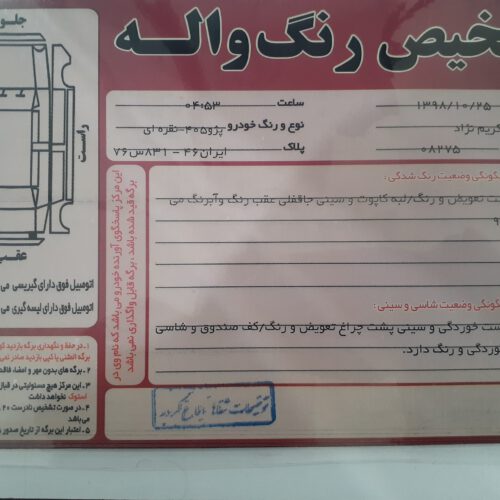 تشخیص رنگ واله
جلو
راست
عقب
۱۳۹۸/۱۰/۲۵
ساعت ۰۴:۵۳
کریم نژاد
نوع و رنگ خودرو پژو۴۰۵-نقره ای
۰۸۲۷۵
پلاک ایران۴۶ - ۸۳۱س۷۶
چگونگی وضعیت رنگ شدگی:
تعویض و رنگ/لبه کاپوت و سینی جاقفلی عقب رنگ وآبرنگ می
چگونگی وضعیت شاسی و سینی:
خوردگی و سینی پشت چراغ تعویض و رنگ/کف صندوق و شاسی
خوردگی و رنگ دارد.
این مرکز پاسخگوی آورنده خودرو می باشد که نام وی در
برگه قید شده باشد، برگه قابل واگذاری نمی باشد
اتومبیل فوق دارای گیریسی می
اتومبیل فوق دارای لیسه گیری می
۱. در حفظ و نگهداری برگه بازدید
برگه المثنی یا کپی بازدید صادر نمی
۲. برگه های بدون مهر و امضاء فاقد
۳. این مرکز هیچ مسئولیتی در قبال
استوک نخواهد داشت
۴. در صورت تشخیص نادرست ۲۰
می باشد
۵. اعتبار این برگه از تاریخ صدور
توضیحات شفاها ابلاغ گردید